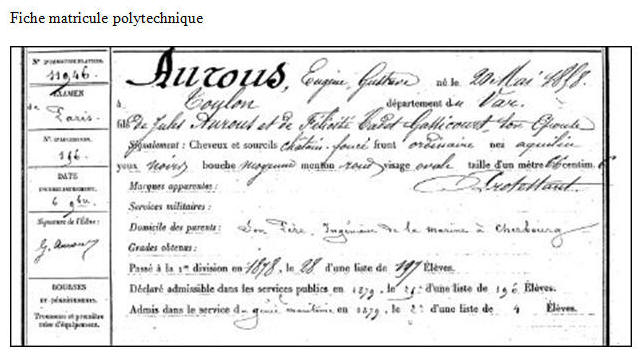 Fiche matricule polytechnique
N° D'IMMATRICULATION
11946.
EXAMEN
de Paris.
N° D'ADMISSION.
196.
DATE
6 9bre
Signature de l'Élève:
G. Aurous
BOURSES
ET DÉGRÈVEMENTS.
Trousseau et première
mise d'équipement.
Aurous, Eugène Gustave né le 20 Mai 1858.
à Toulon département du Var.
fils de Jules Aurous et de Félicité Cadet Gassicourt, son Épouse
Signalement : Cheveux et sourcils châtain foncé front ordinaire nez aquilin
yeux noirs bouche moyenne menton rond visage ovale taille d'un mètre centim.
Protestant.
Marques apparentes :
Services militaires :
Domicile des parents : Son Père, Ingénieur de la marine à Cherbourg
Grades obtenus :
Passé à la 1re division en 1878, le 28 d'une liste de 197 Élèves.
Déclaré admissible dans les services publics en 1879, le d'une liste de 196 Élèves.
Admis dans le service du génie maritime en 1879, le 2e d'une liste de 4 Élèves.